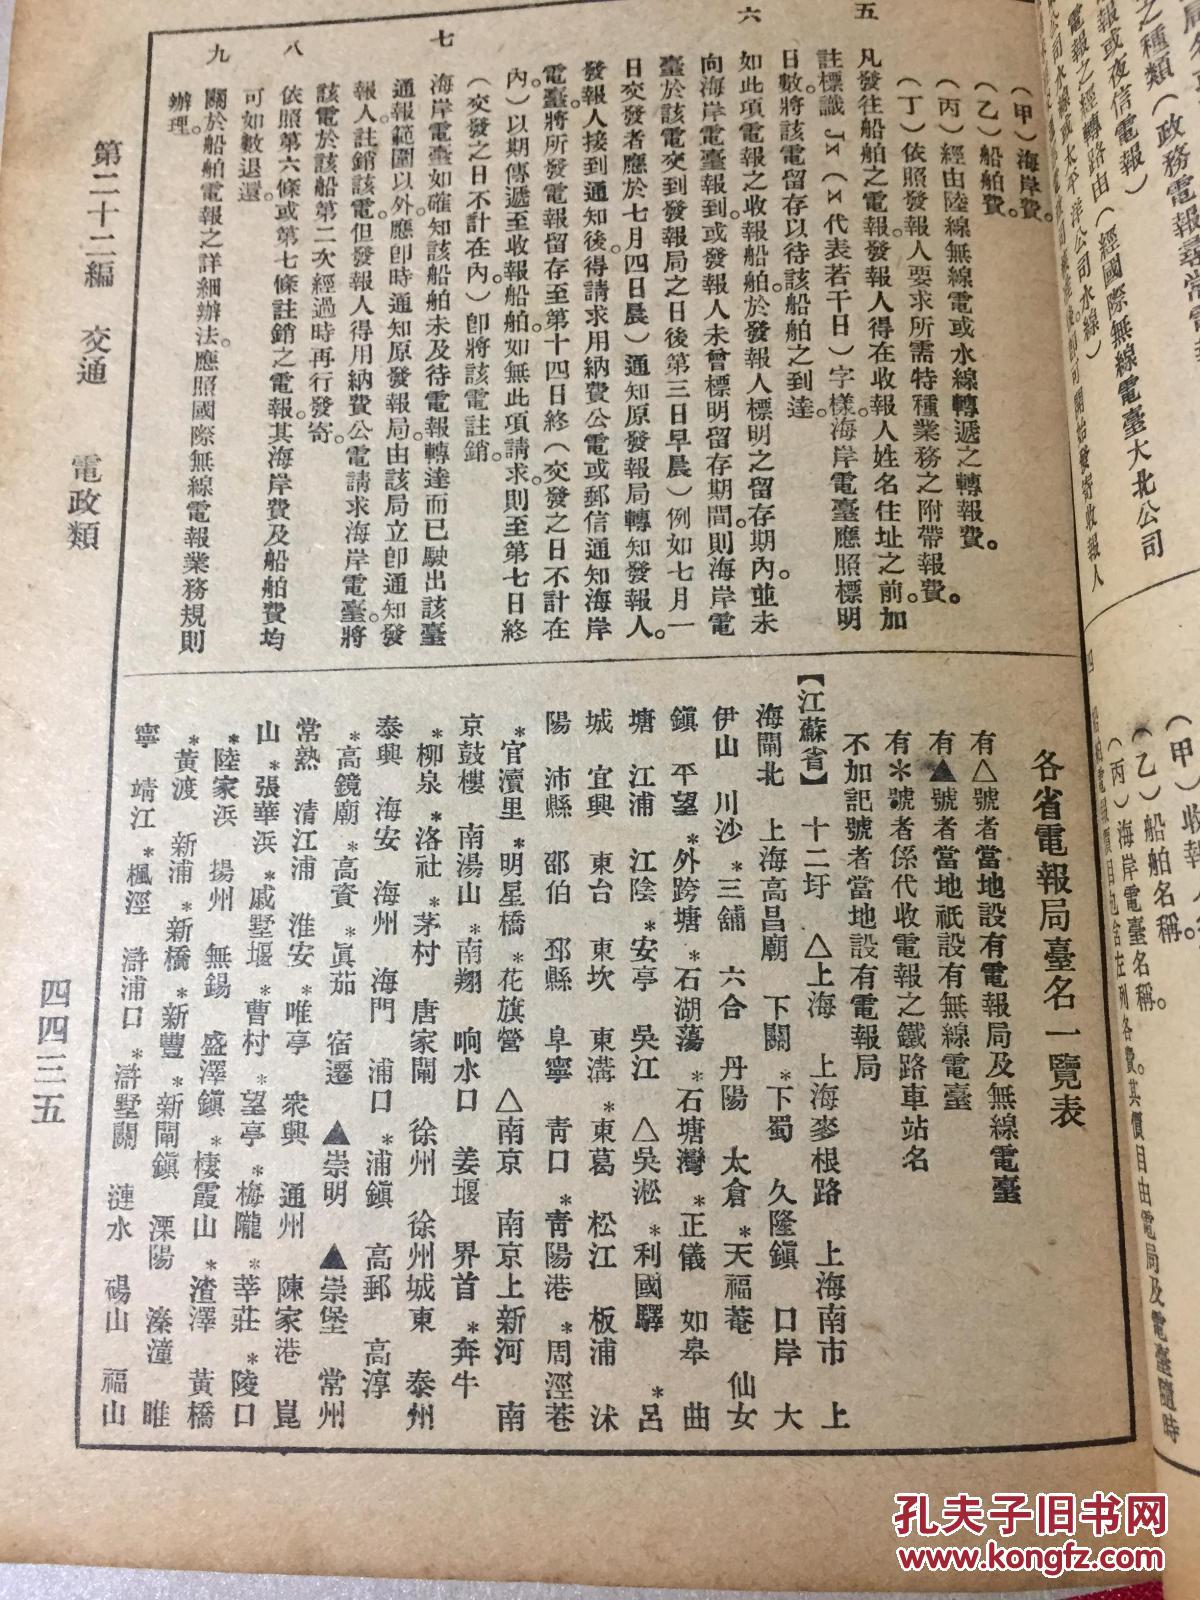 （甲）海岸費。
（乙）船舶費。
（丙）經由陸線無線電或水線轉遞之轉報費。
（丁）依照發報人要求所需特種業務之附帶報費。
五
凡發往船舶之電報發報人得在收報人姓名住址之前。加
註標識 Jx（x代表若干日）字樣。海岸電臺應照標明
日數。將該電留存以待該船舶之到達。
六
如此項電報之收報船舶。於發報人標明之留存期內。並未
向海岸電臺報到。或發報人未曾標明留存期間。則海岸電
臺於該電交到發報局之日後第三日早晨）例如七月一
日交發者應於七月四日晨）通知原發報局轉知發報人。
發報人接到通知後。得請求用納費公電或郵信通知海岸
電臺。將所發電報留存至第十四日終（交發之日不計在
內。）以期傳遞至收報船舶。如無此項請求。則至第七日終
（交發之日不計在內。）卽將該電註銷。
七
海岸電臺如確知該船舶未及待電報轉達而已駛出該臺
通報範圍以外。應卽時通知原發報局。由該局立卽通知發
報人註銷該電。但發報人得用納費公電請求海岸電臺。將
該電於該船第二次經過時再行發寄。
八
依照第六條。或第七條註銷之電報。其海岸費及船舶費均
可如數退還。
九
關於船舶電報之詳細辦法。應照國際無線電報業務規則
辦理。
各省電報局臺名一覽表
有△號者當地設有電報局及無線電臺
有▲號者當地祇設有無線電臺
有＊號者係代收電報之鐵路車站名
不加記號者當地設有電報局
【江蘇省】 十二圩 △上海 上海麥根路 上海南市 上
海閘北 上海高昌廟 下關 *下蜀 久隆鎮 口岸 大
伊山 川沙 *三舖 六合 丹陽 太倉 *天福菴 仙女
鎮 平望 *外跨塘 *石湖蕩 *石塘灣 *正儀 如皋 曲
塘 江浦 江陰 *安亭 吳江 △吳淞 *利國驛 *呂
城 宜興 東台 東坎 東溝 *東葛 松江 板浦 沭
陽 沛縣 邵伯 邳縣 阜寧 靑口 *靑陽港 *周涇巷
*官瀆里 *明星橋 *花旗營 △南京 南京上新河 南
京鼓樓 南湯山 *南翔 响水口 姜堰 界首 *奔牛
*柳泉 *洛社 *茅村 唐家閘 徐州 徐州城東 泰州
泰興 海安 海州 海門 浦口 *浦鎮 高郵 高淳
*高鏡廟 *高資 *眞茹 宿遷 ▲崇明 ▲崇堡 常州
常熟 清江浦 淮安 *唯亭 衆興 通州 陳家港 崑
山 *張華浜 *戚墅堰 *曹村 *望亭 *梅隴 *莘莊 *陵口
*陸家浜 揚州 無錫 盛澤鎮 *棲霞山 *渣澤 黃橋
*黃渡 新浦 *新橋 *新豐 *新閘鎮 溧陽 溱潼 睢
寧 靖江 *楓涇 滸浦口 *滸墅關 漣水 碭山 福山
第二十二編 交通 電政類
四四三五
孔夫子旧书网
www.kongfz.com